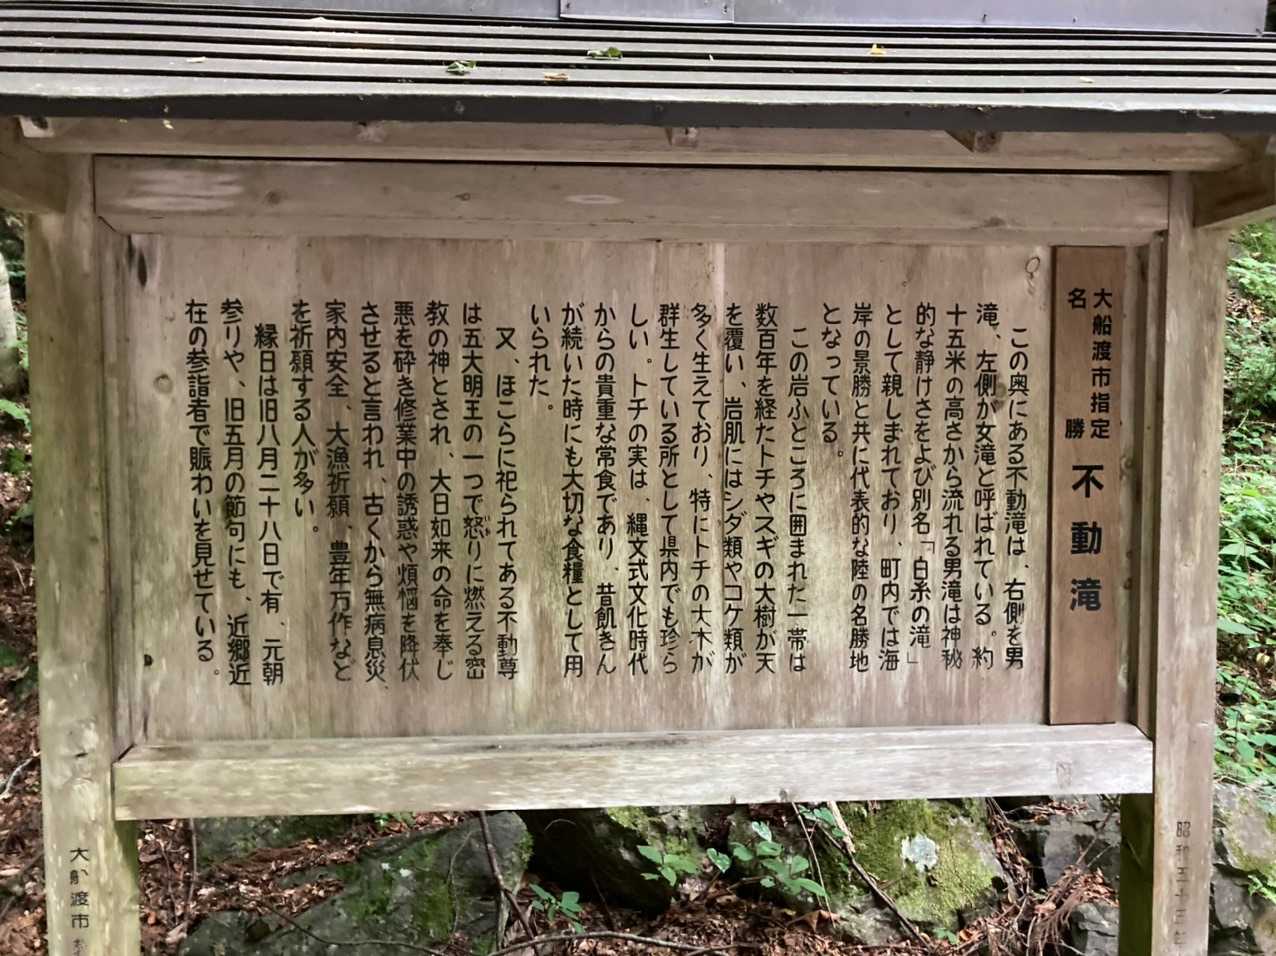 大船渡市指定
名勝
不動滝
この奥にある不動滝は、右側を男
滝、左側が女滝と呼ばれている。約
十五米の高さから流れる男滝は神秘
的な静けさをよび別名「白糸の滝」
として親しまれており、町内では海
岸の景勝と共に代表的な陸の名勝地
となっている。
この岩ふところに囲まれた一帯は
数百年を経たトチやスギの大樹が天
を覆い、岩肌にはシダ類やコケ類が
多く生えており、特にトチの大木が
群生している所として県内でも珍ら
しい。トチの実は、縄文式文化時代
からの貴重な常食であり、昔飢きん
が続いた時にも大切な食糧として用
いられた。
又、ほこらに祀られてある不動尊
は五大明王の一つで怒りに燃える密
教の神とされ、大日如来の命を奉じ
悪を砕き修業中の誘惑や煩悩を降伏
させると言われ、古くから無病息災
家内安全、大漁祈願、豊年万作など
を祈願する人が多い。
縁日は旧八月二十八日で有、元朝
参りや、旧五月の節句にも、近郷近
在の参詣者で賑わいを見せている。
昭和五十三年
大船渡市